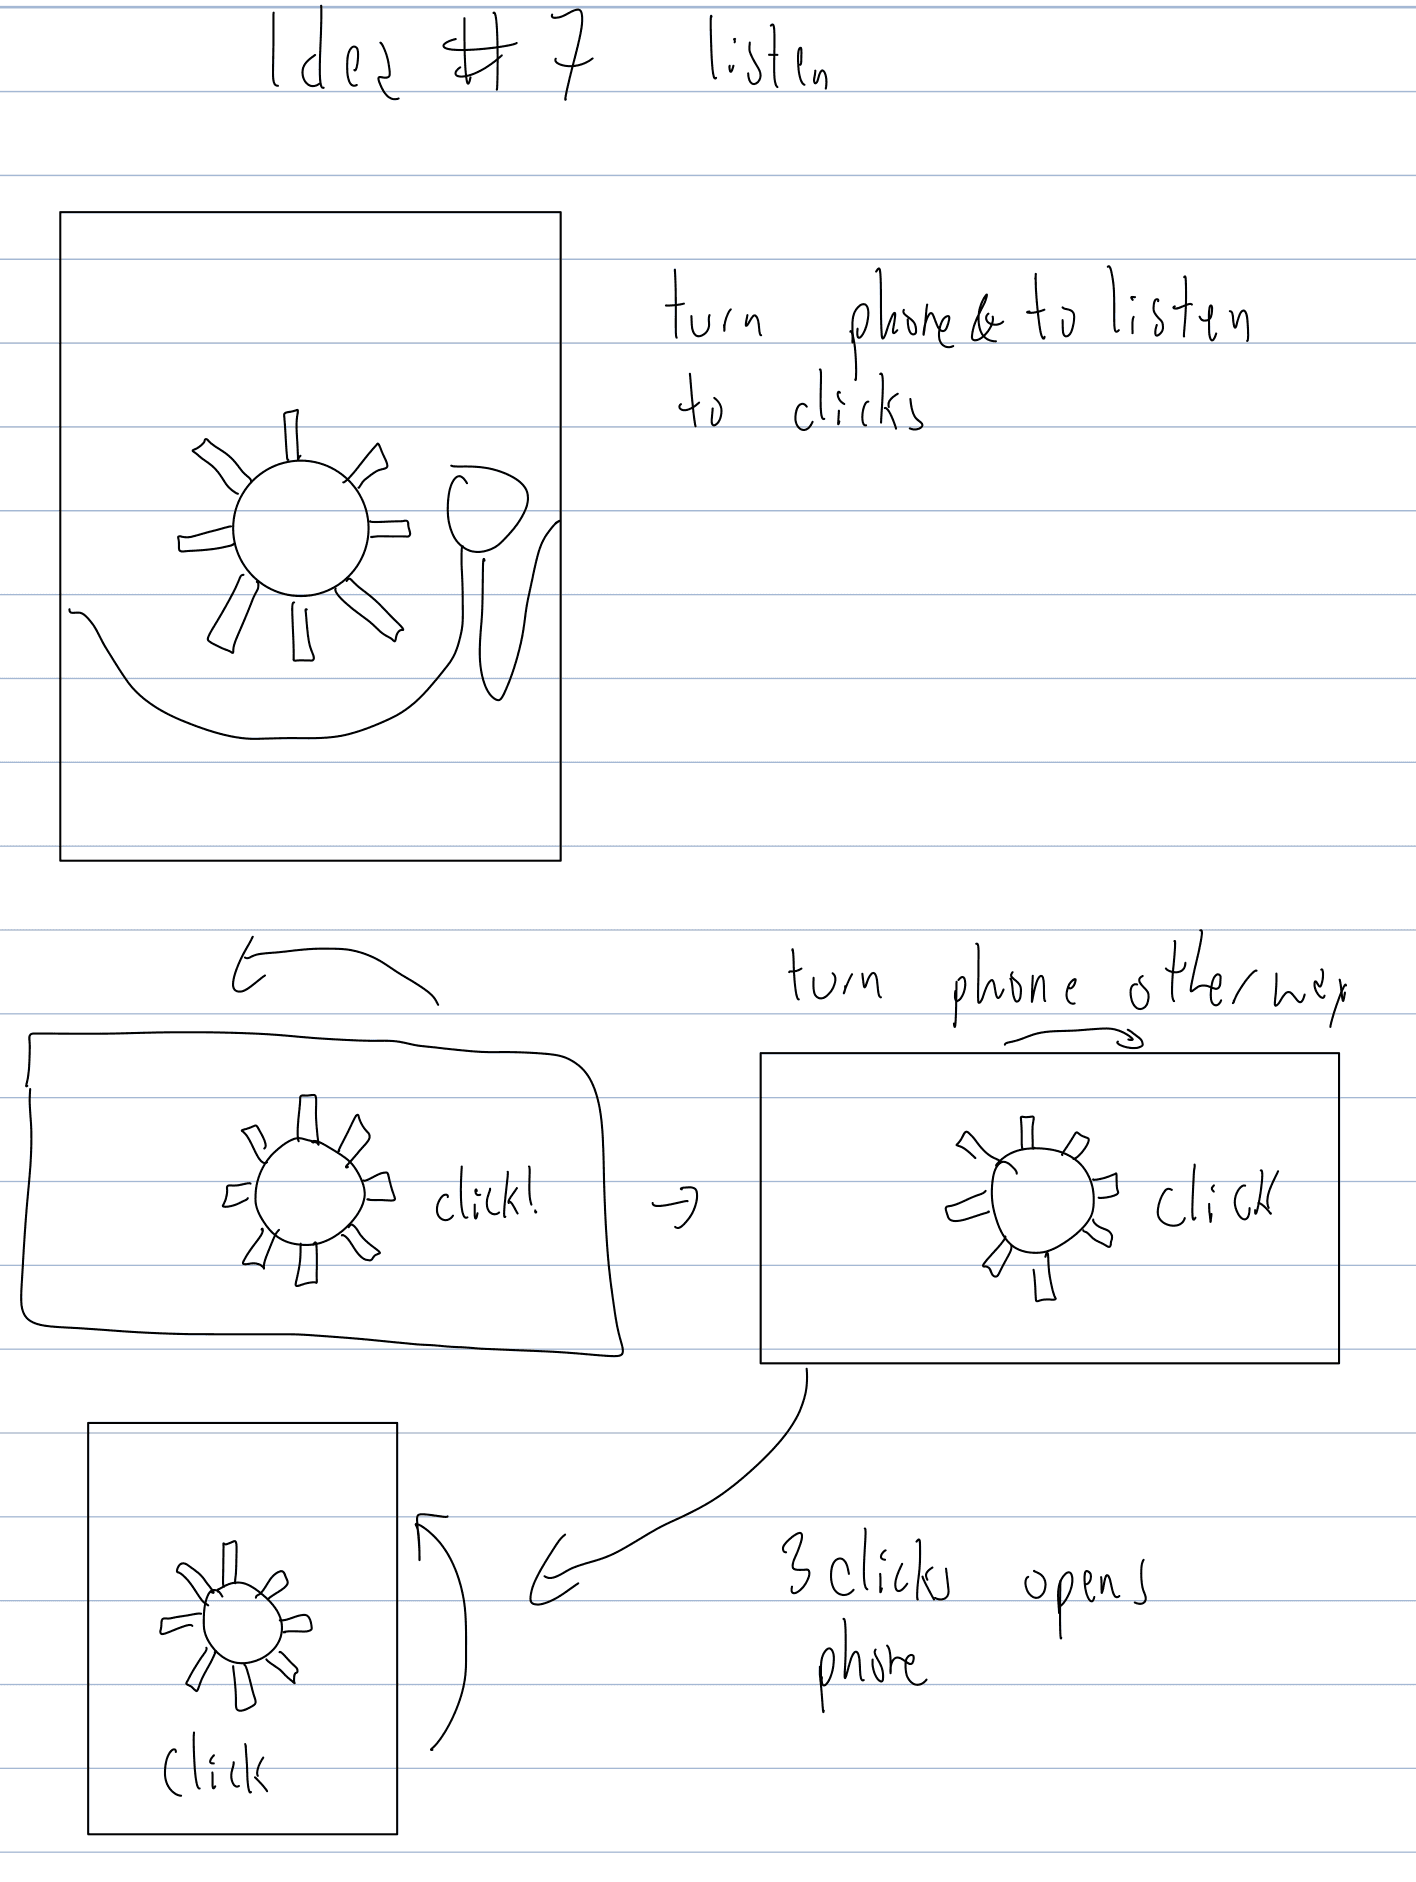 Idea # 7 listen
turn phone & to listen
to clicks
turn phone other way
click!
click
3 clicks opens
phone
click